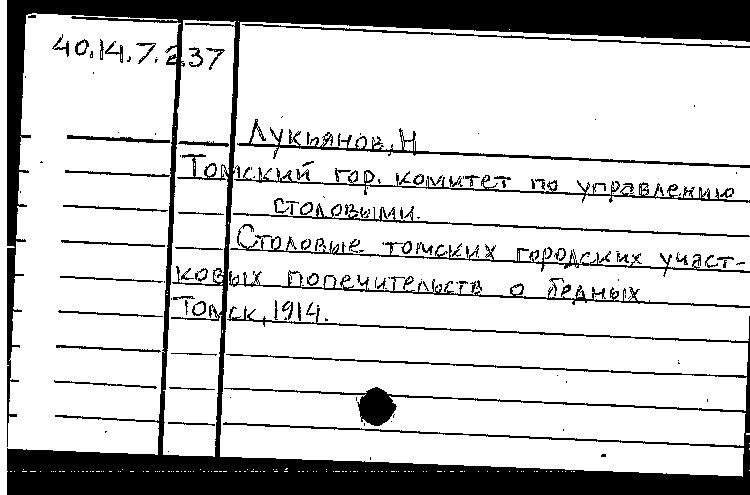 40.14.7.237
Лукьянов, Н
Томский гор. комитет по управлению
столовыми.
Столовые томских городских участ-
ковых попечительств о бедных
Томск, 1914.